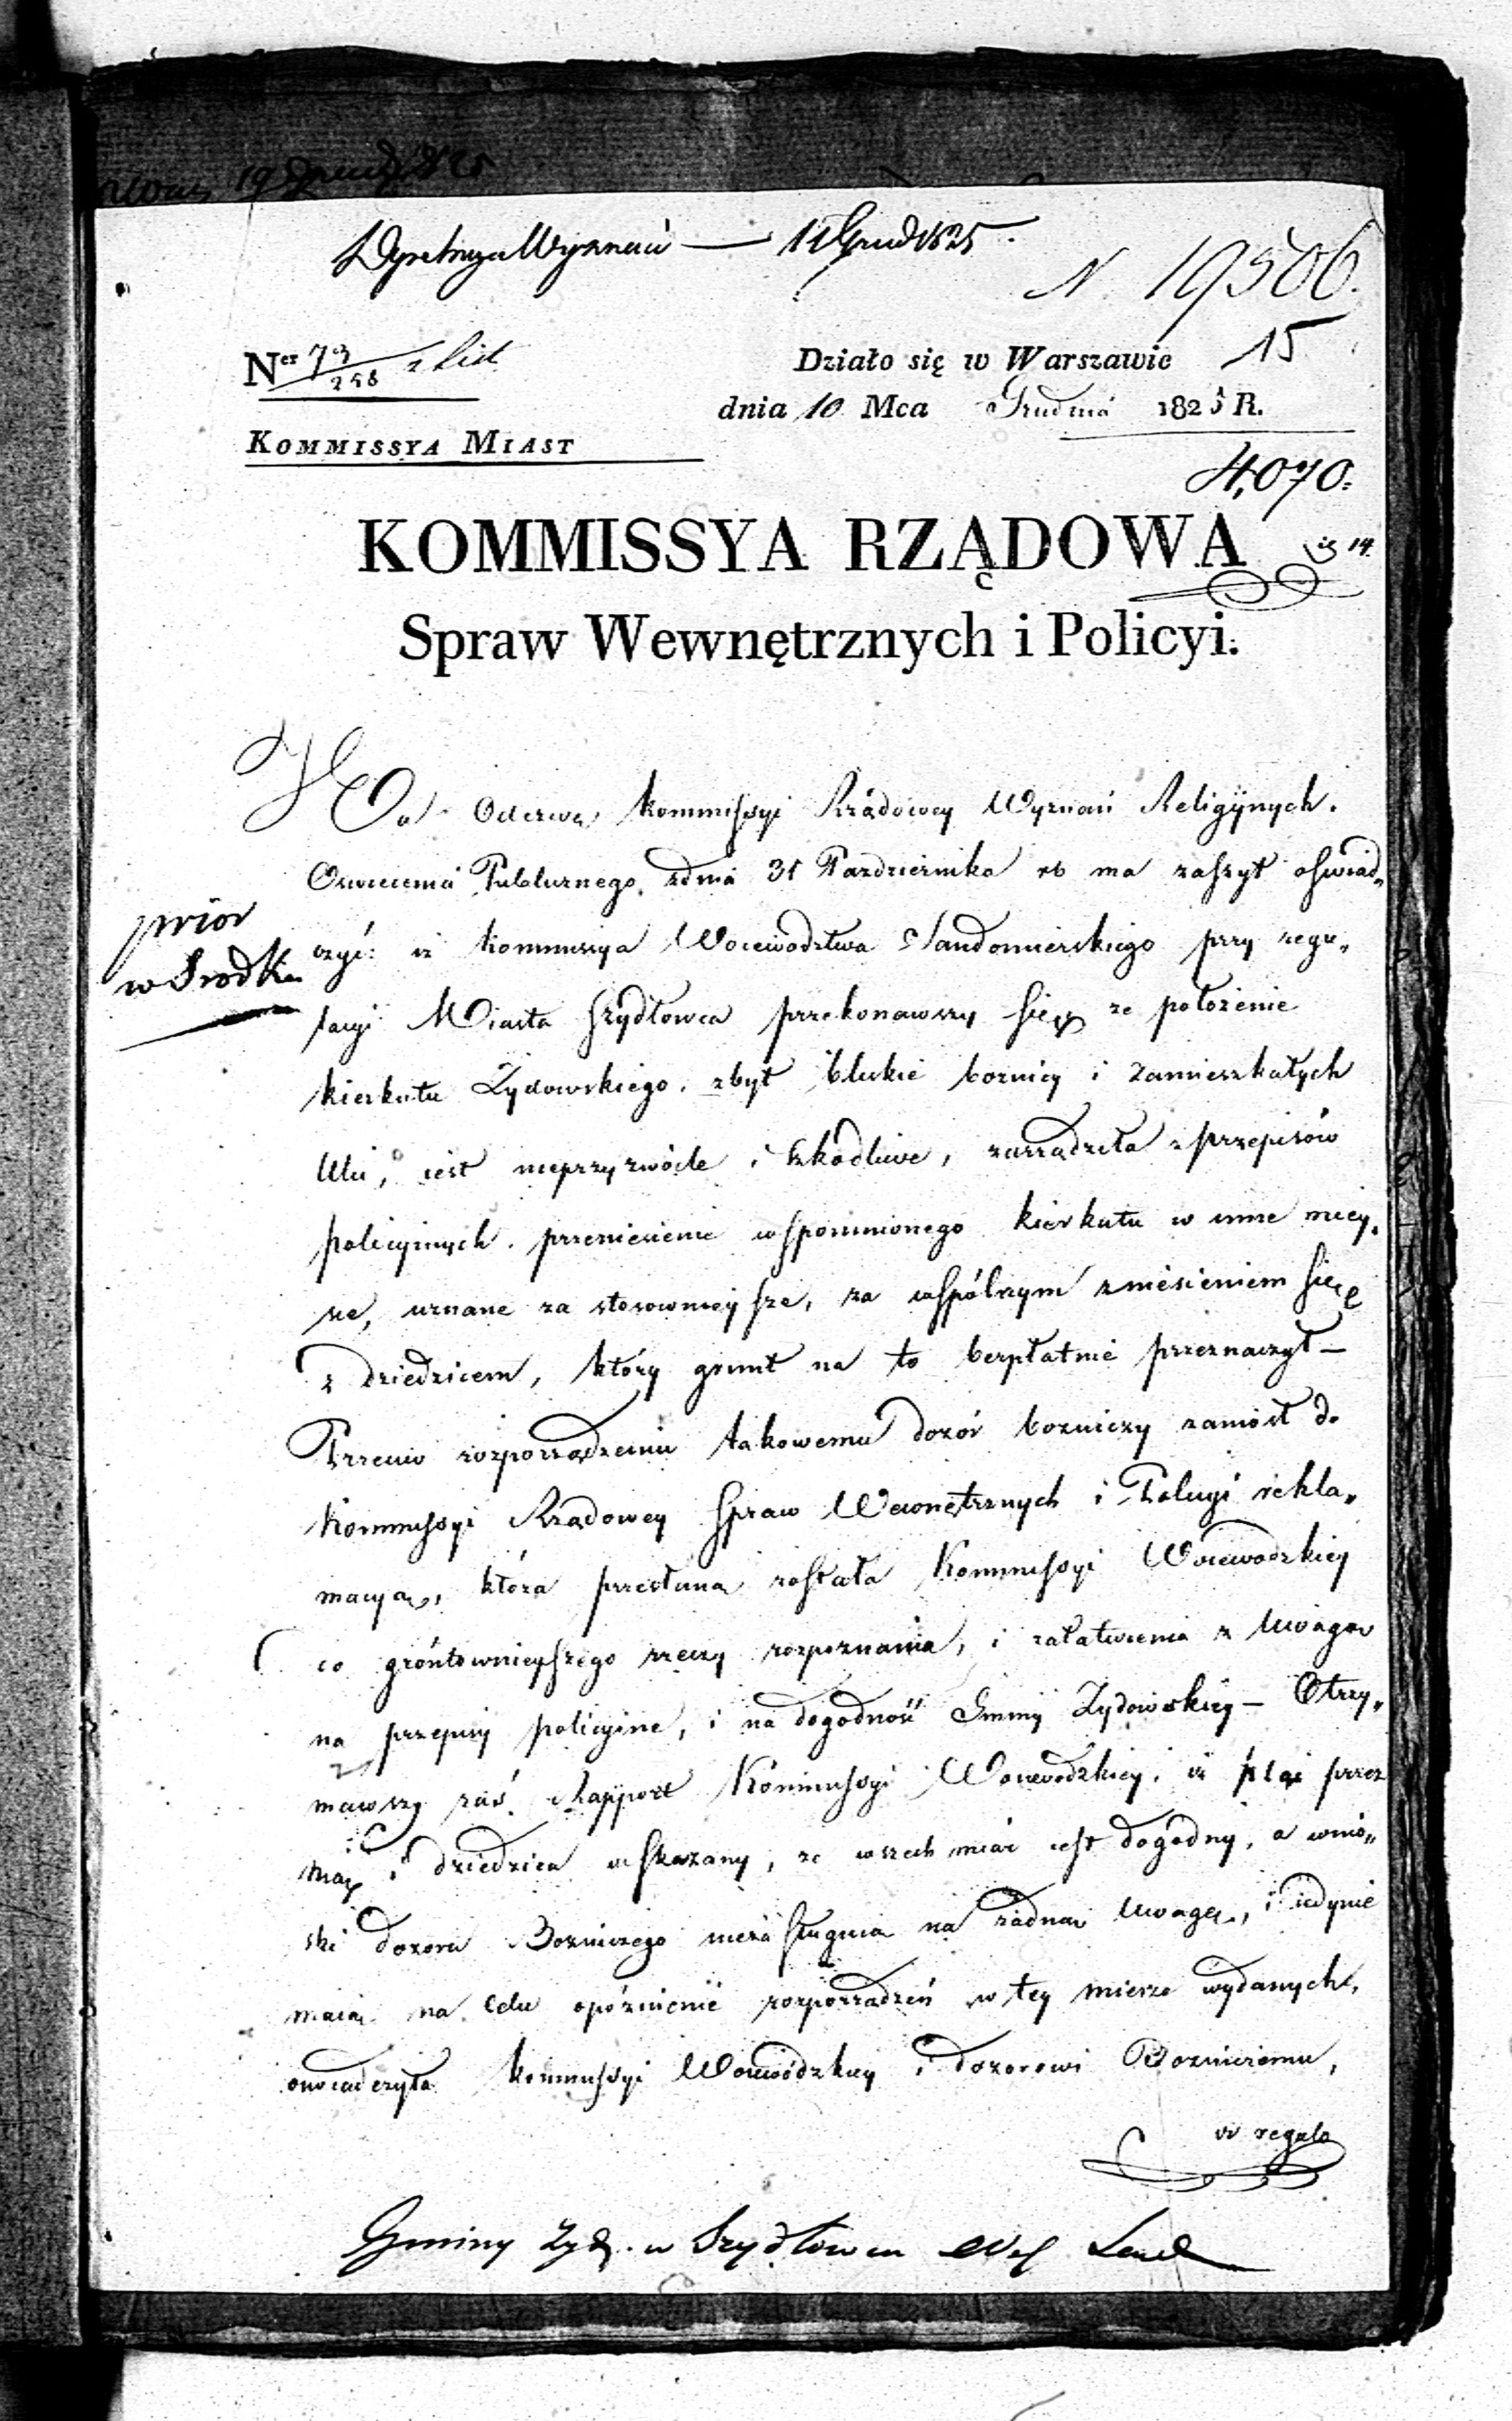 Dyrekcya Wyznań — 11 Grud 1825.
N. 19506.
15
Ner 73/258 z list
Działo się w Warszawie
dnia 10 Mca Grudnia 1825 R.
KOMMISSYA MIAST
4,070.
KOMMISSYA RZĄDOWA
Spraw Wewnętrznych i Policyi.
Na Odezwę Kommissyi Rządowey Wyznań Religiynych.
Oswiecenia Publicznego zdnia 31 Pazdziernika rb ma zaszczyt oświad„
prior
w Srodku
czyć: iż Kommissya Woiewodztwa Sandomierskiego przy regu„
lacyi Miasta Szydłowca przekonawszy się, ze położenie
kierkutu Żydowskiego, zbyt bliskie boznicy i zamieszkałych
Ulic, iest nieprzyzwoite i szkodliwe, zarządziła z przepisów
policyinych przeniesienie wspomnionego kierkutu w inne miey„
sce, uznane za stosownieysze, za wspólnym zniesieniem się
z dziedzicem, ktory grunt na to bezpłatnie przeznaczył —
Przeciw rozporządzeniu takowemu dozór bozniczy zaniósł do
Kommissyi Rządowey Spraw Wewnętrznych i Policyi rekla„
macyą, która przesłana została Kommissyi Woiewodzkiey
co gróntownieyszego rzeczy rozpoznania, i załatwienia z uwagą
na przepisy policyine, i na dogodność Gminy Żydowskiey — Otrzy„
mawszy zaś Rapport Kommissyi Woiewodzkiey, iż plac przez
nią i dziedzica wskazany, ze wszech miar iest dogodny, a wnio„
ski dozoru Bozniczego niezasługuią na żadną uwagę, i iedynie
maią na celu opóznienie rozporządzeń w tey mierze wydanych,
oswiadczyła Kommissyi Woiewódzkiey i dozorowi Bozniczemu,
w regule
Gminy Żyd. w Szydłowcu